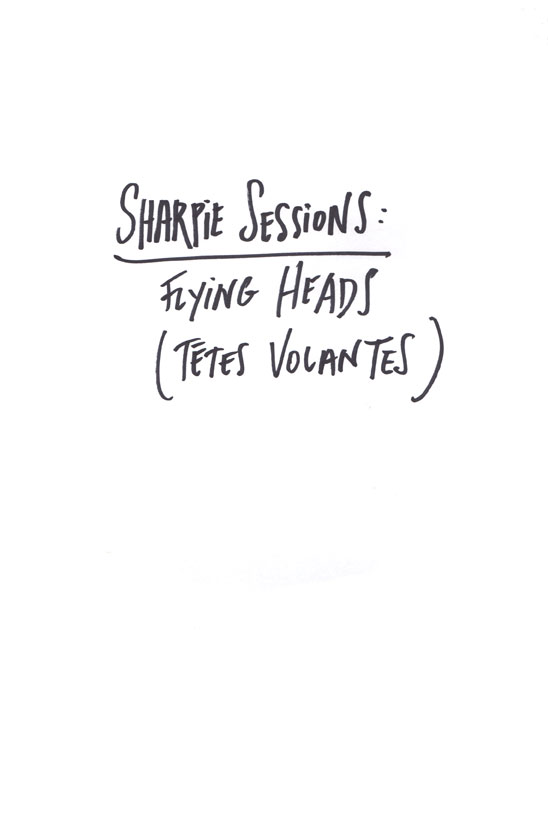 SHARPiE SESSiONS:
FLYiNG HEADS
(TÊTES VOLANTES)